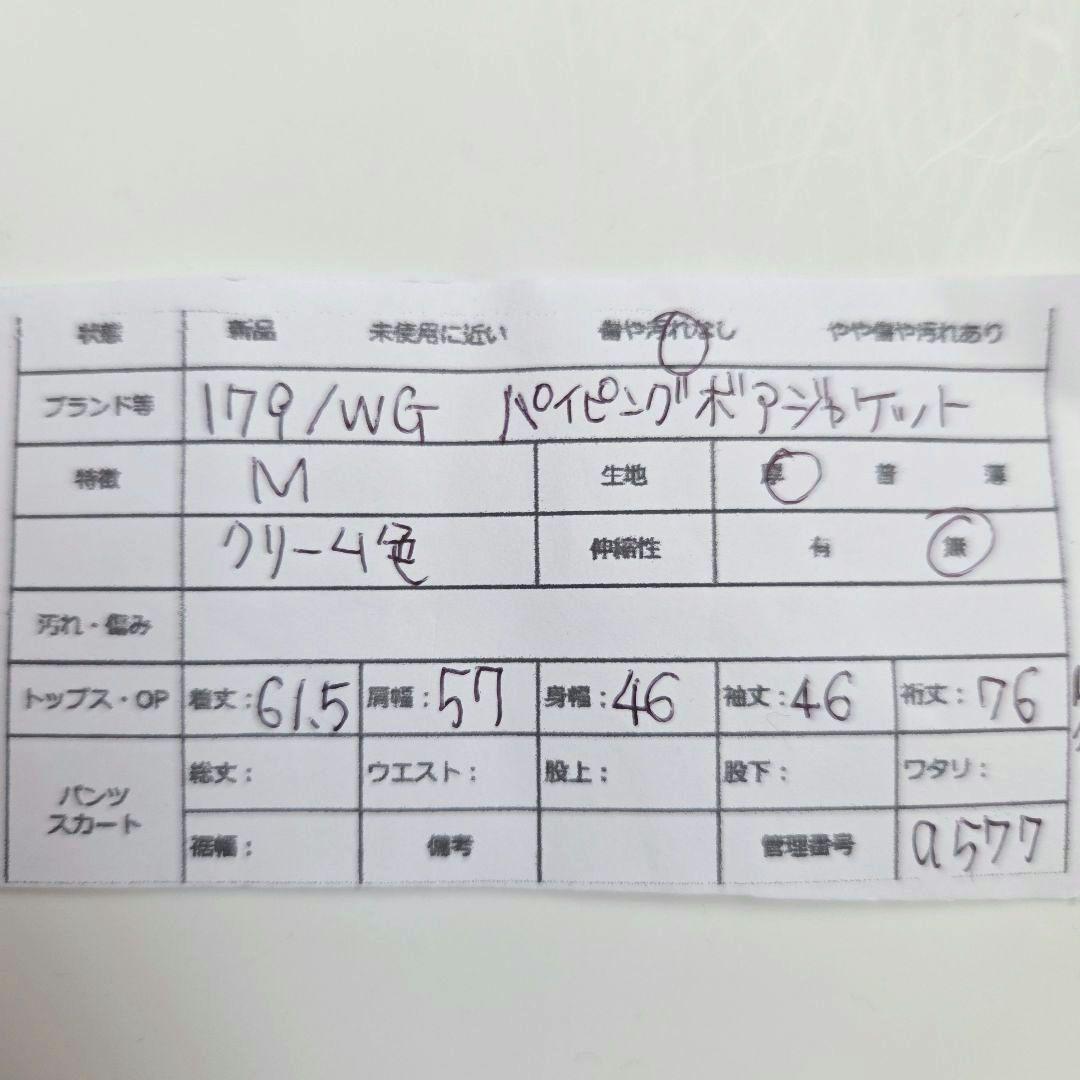 状態 新品 未使用に近い 傷や汚れなし やや傷や汚れあり
ブランド等 179/WG パイピングボアジャケット
特徴 M 生地 厚 普 薄
クリーム色 伸縮性 有 無
汚れ・傷み
トップス・OP 着丈:61.5 肩幅:57 身幅:46 袖丈:46 裄丈:76
パンツ スカート 総丈: ウエスト: 股上: 股下: ワタリ:
裾幅: 備考 管理番号 a577